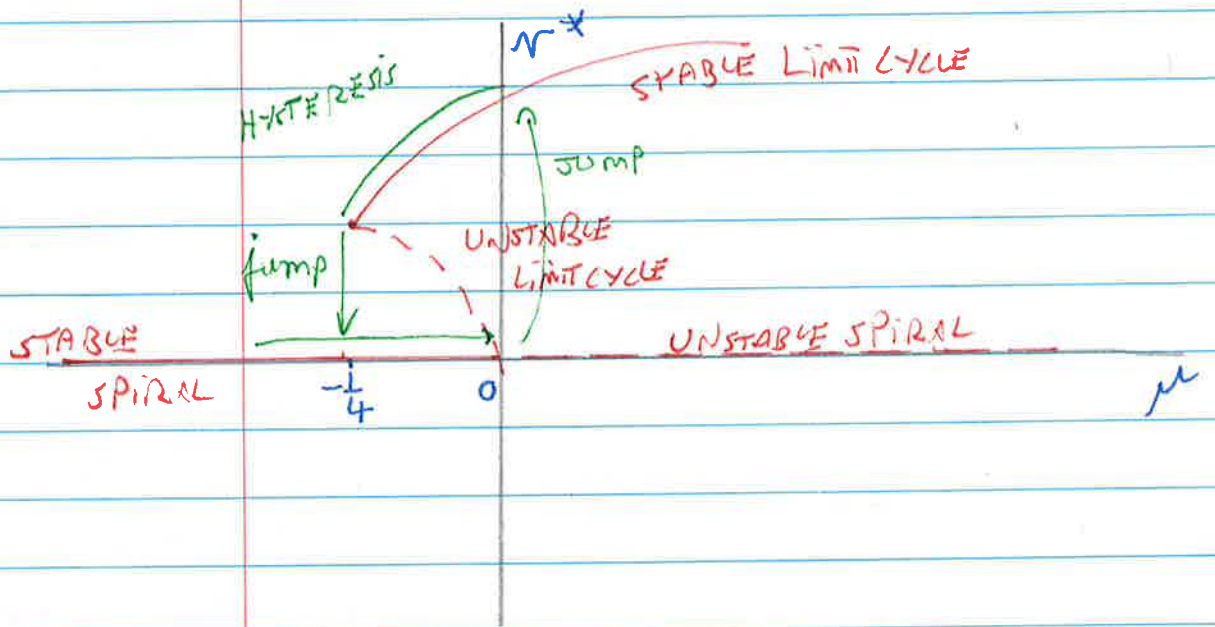 r*
STABLE LIMIT CYCLE
HYSTERESIS
JUMP
UNSTABLE
LIMIT CYCLE
jump
STABLE
UNSTABLE SPIRAL
SPIRAL
-1/4
0
μ